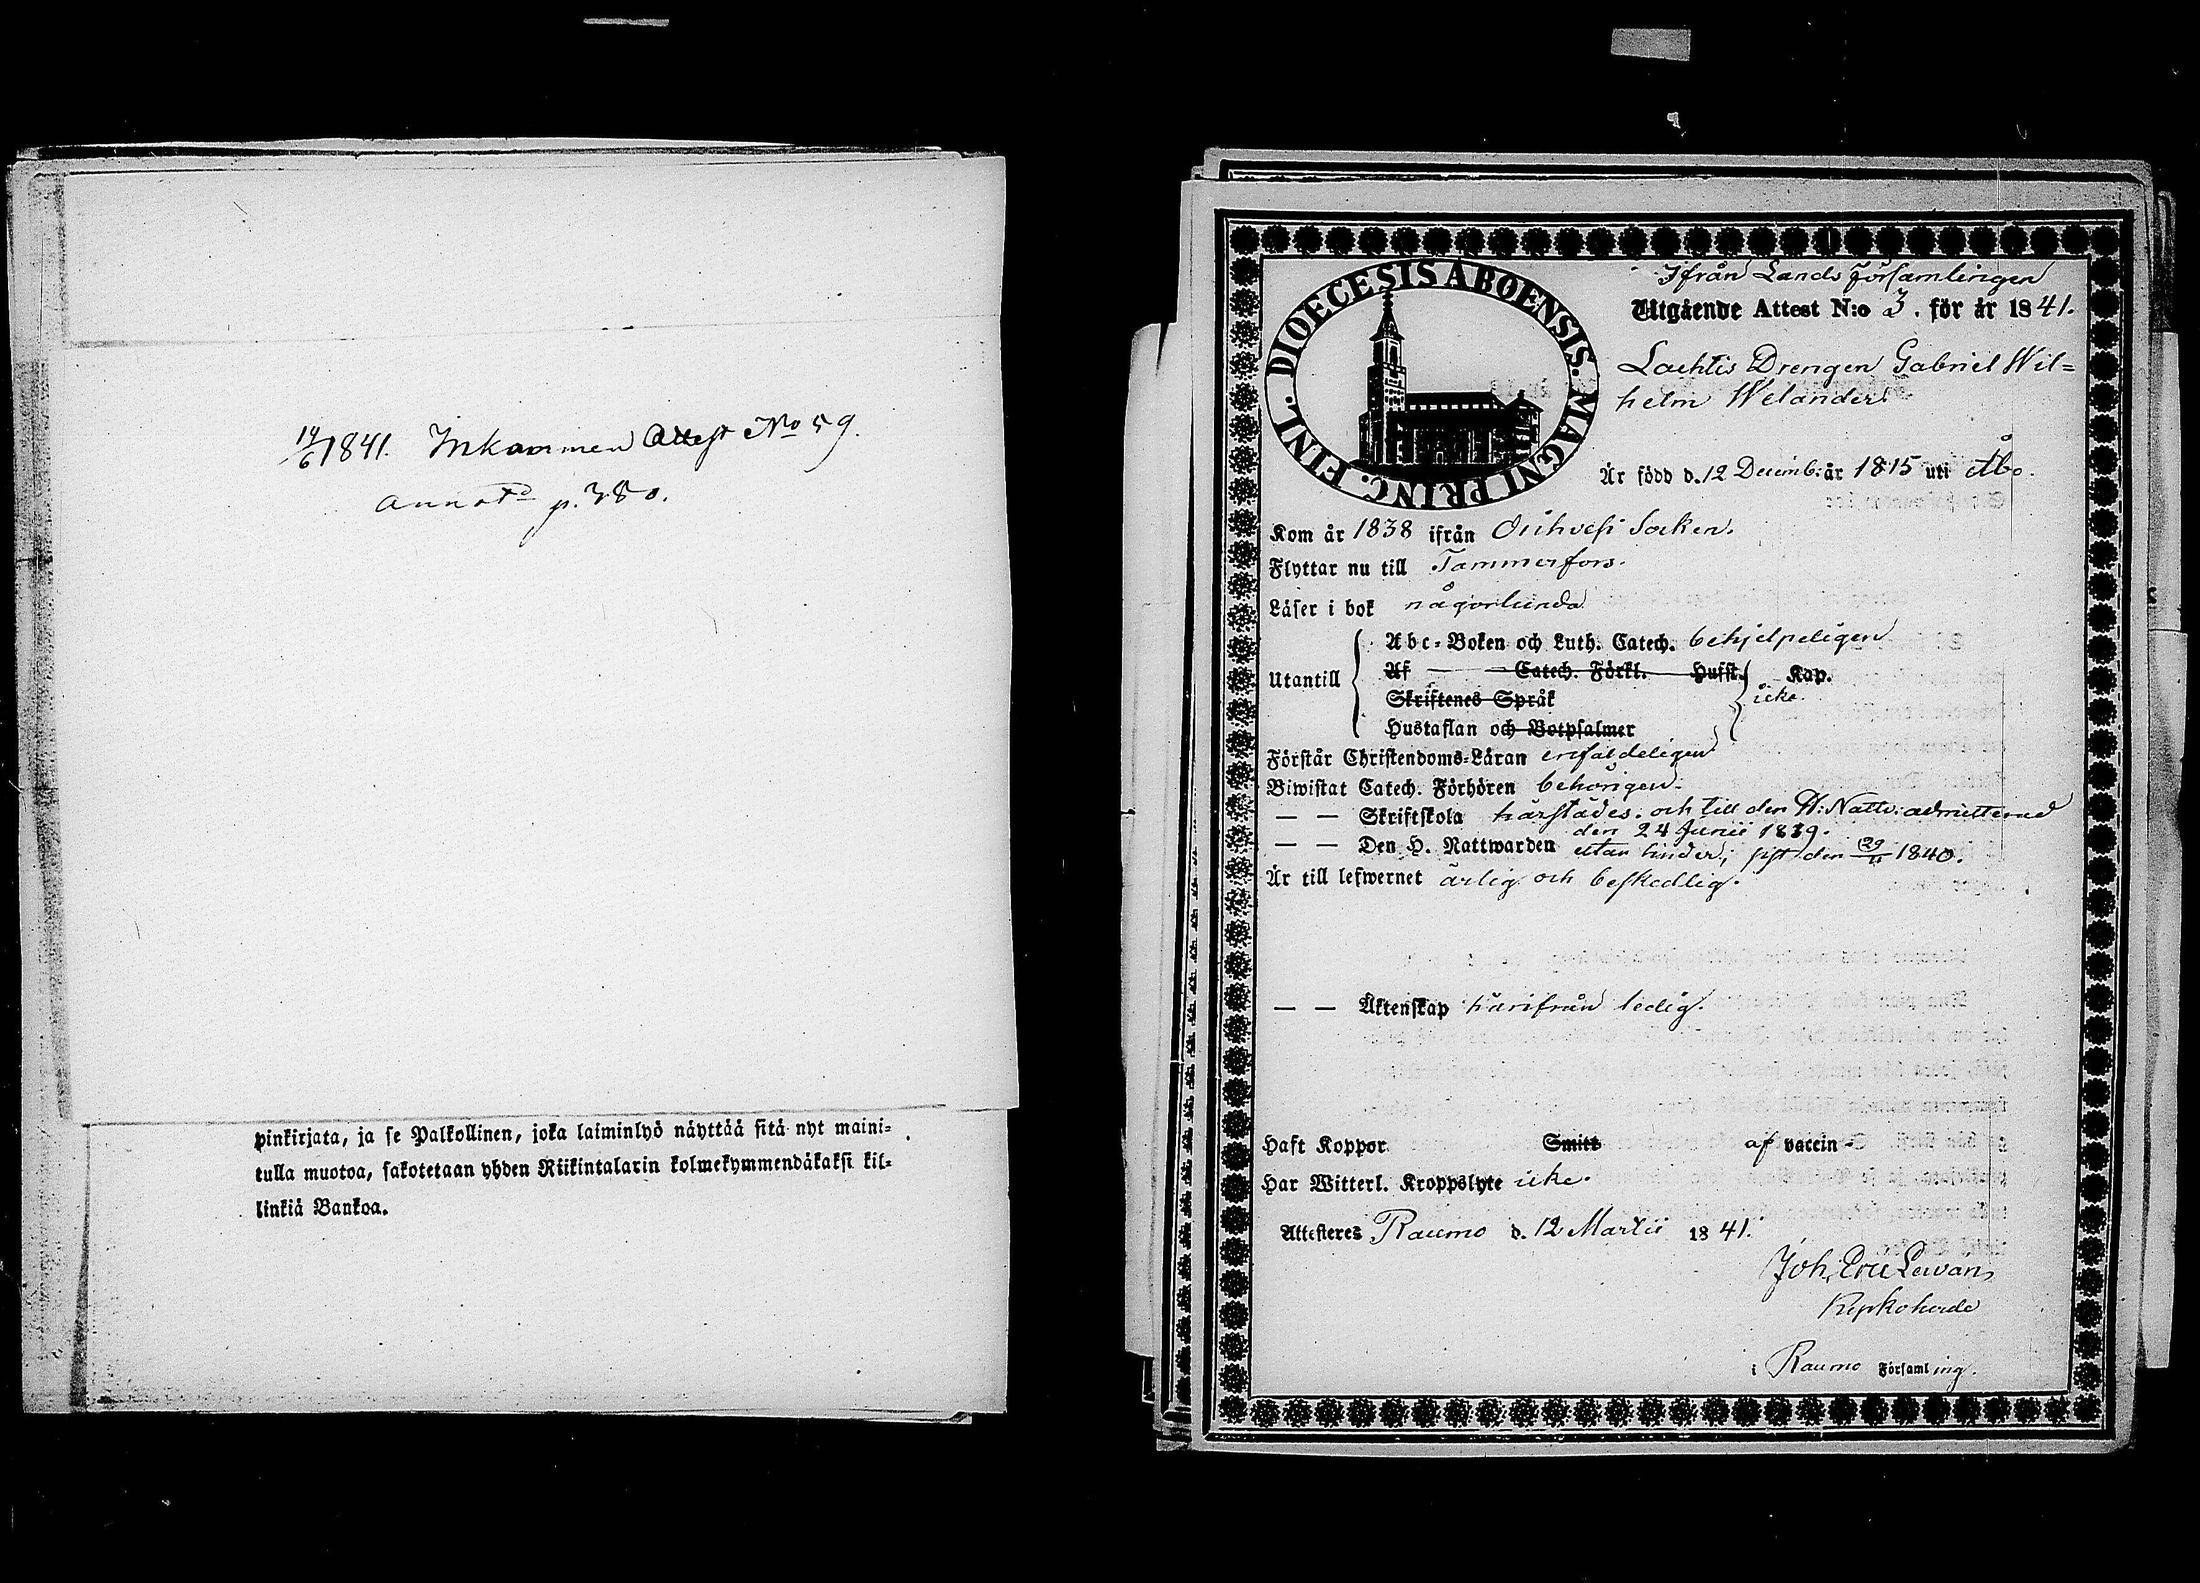 14/6 1841. Inkommen Attest No 59.
Annotd p. 380.
pinkirjata, ja se Palkollinen, joka laiminlyö näyttää sitä nyt maini-
tulla muotoa, sakotetaan yhden Riikintalarin kolmekymmendäkaksi kil-
linkiä Bankoa.
DIOECESIS ABOENSIS. MAGNI PRINC. FINL.
Ifrån Lands Församlingen
Utgående Attest N:o 3. för år 1841.
Drengen Gabriel Wil=
helm Welander.
Är född d. 12 Decemb: år 1815 uti Åbo.
Kom år 1838 ifrån Orihvesi Socken.
Flyttar nu till Tammerfors.
Läser i bok någorlunda
Utantill
Abc-Boken och Luth. Catech. behjelpeligen
Af — Catech. Förkl. — Husst. — Kap.
Skriftenes Språk icke.
Hustaflan och Botpsalmer
Förstår Christendoms-Läran enfaldeligen
Biwistat Catech. Förhören behörigen.
— — Skriftskola härstädes. och till den H: Nattv: admitterad
den 24 Junii 1839.
— — Den H. Nattwarden utan hinder, sist den 29/11 1840.
Är till lefwernet ärlig och beskedlig.
— — Äktenskap härifrån ledig.
Haft Koppor Smitt af vaccin -
Har Witterl. Kroppslyte icke.
Attesteres Raumo d. 12 Martii 1841.
Joh. Eric Lewan
Kyrkoherde
i Raumo Församling.